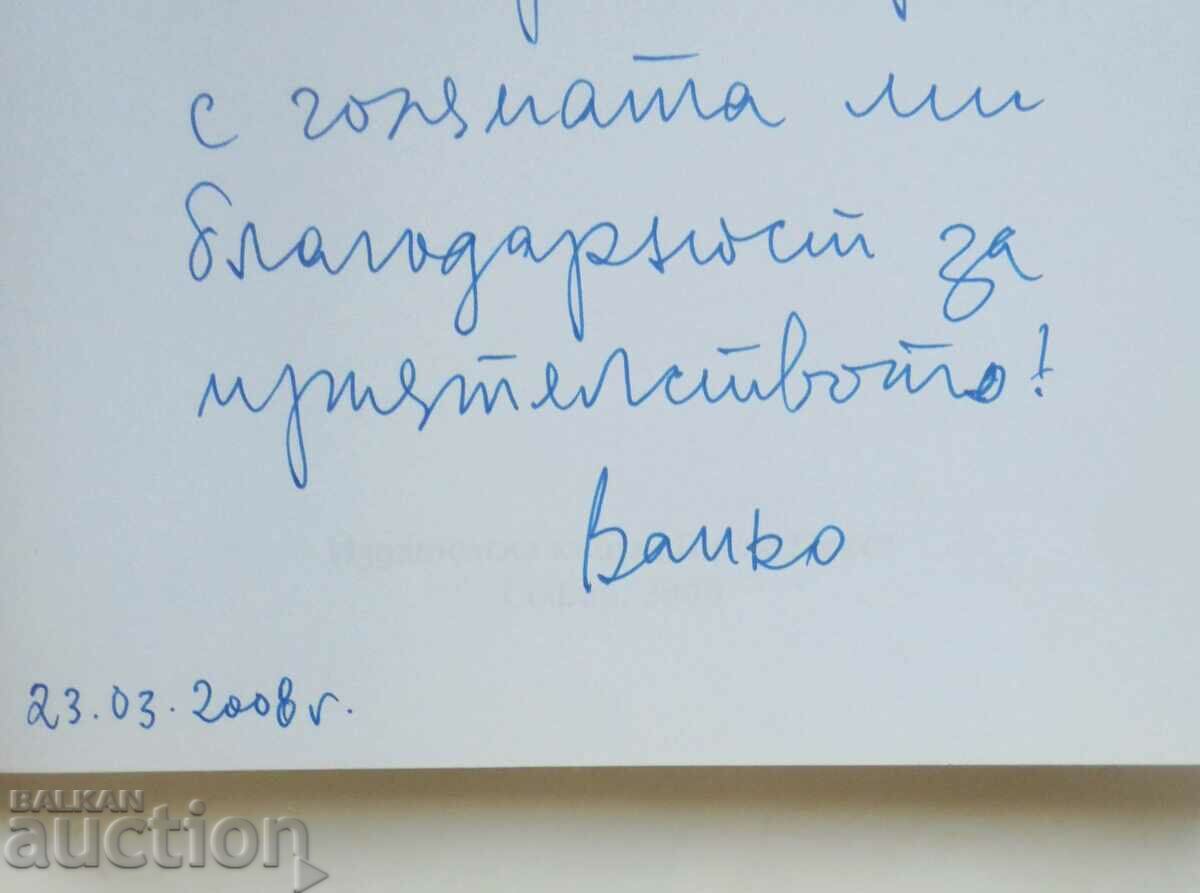 с голямата ми
благодарност за
приятелството!
Ванко
23.03.2008 г.
BALKAN
auction